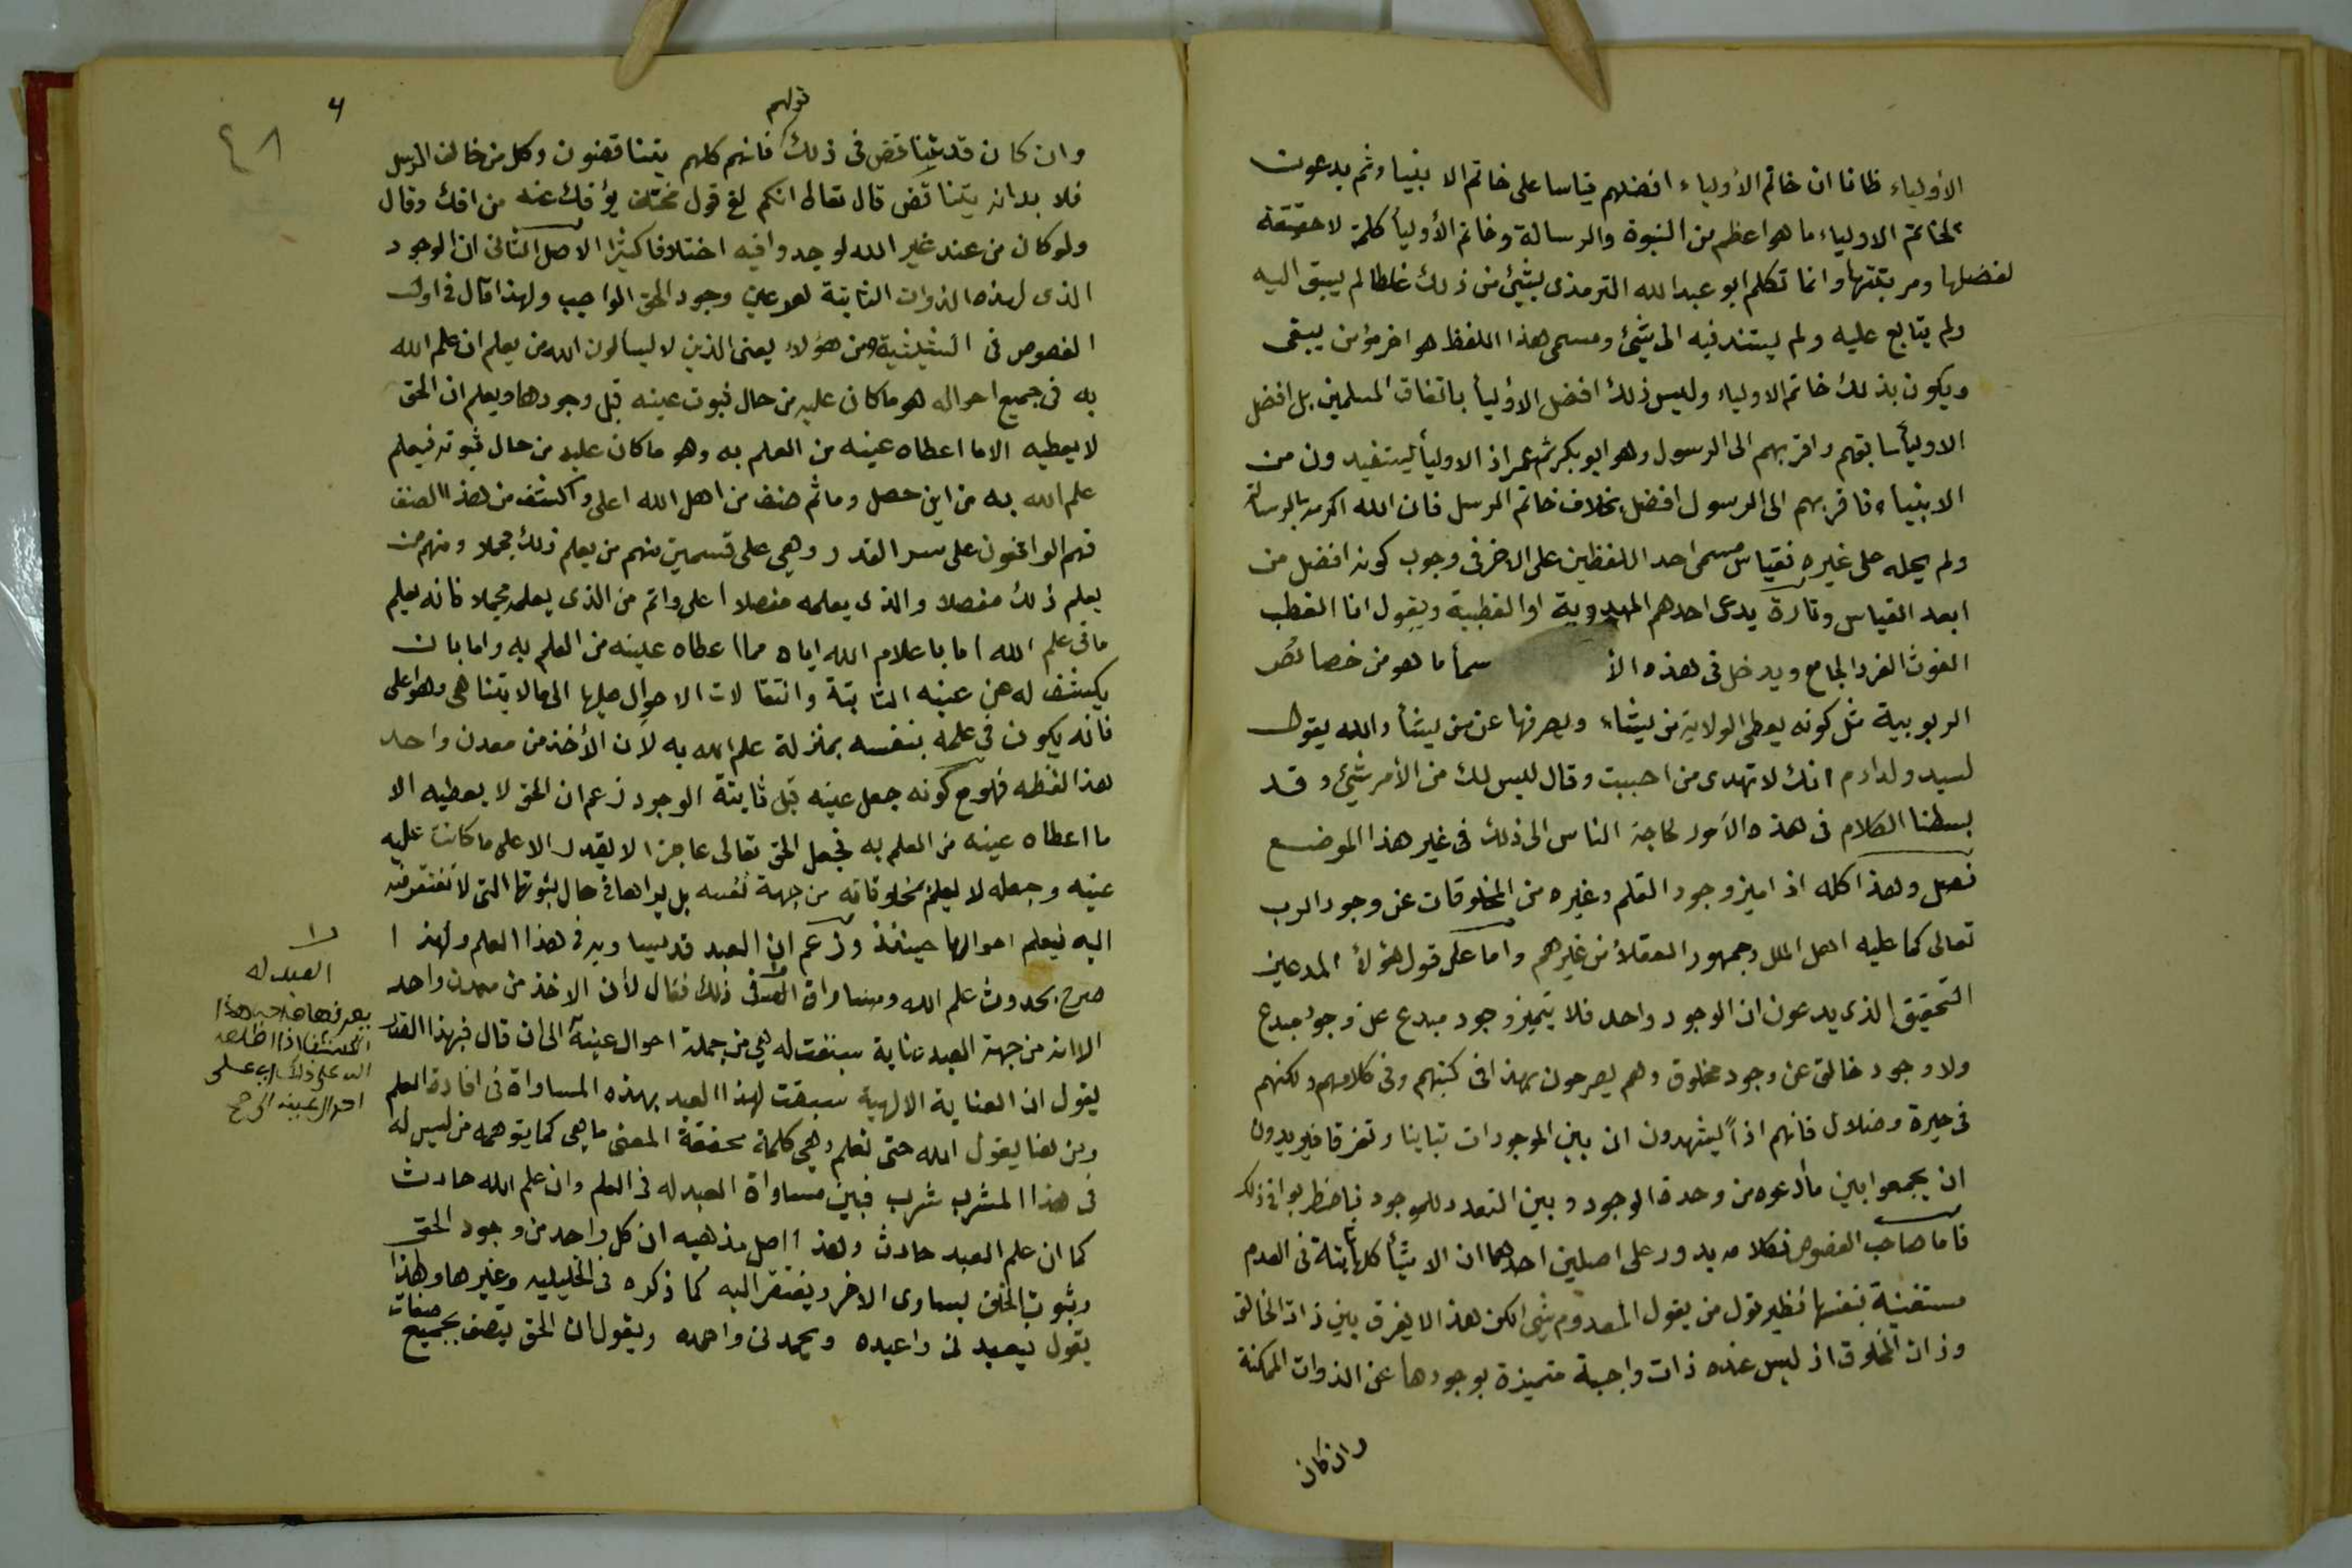 الاولياء ظانا ان خاتم الأولياء افضلهم قياسا على خاتم الانبياء ثم يدعون
لخاتم الاولياء ما هو اعظم من النبوة والرسالة وخاتم الأوليأ كلمة لا حقيقة
لفضلها ومرتبتها وانما تكلم ابو عبد الله الترمذى بشيئ من ذلك غلطا لم يسبق اليه
ولم يتابع عليه ولم يستند فيه الى شيئ ومسمى هذا اللفظ هو اخر مؤمن يبقى
ويكون بذلك خاتم الاولياء وليس ذلك افضل الاوليأ باتفاق المسلمين بل افضل
الاوليأ سابقهم واقربهم الى الرسول وهو ابو بكر ثم عمر اذ الاوليأ يستفيدون من
الانبياء فاقربهم الى الرسول افضل بخلاف خاتم الرسل فان الله اكرمه بالرسالة
ولم يحله على غيره فقياس مسمى احد اللفظين على الاخر فى وجوب كونه افضل من
ابعد القياس وتارة يدعى احدهم المهدوية او القطبية ويقول انا القطب
الغوث الفرد الجامع ويدخل فى هذه الأ سمأ ما هو من خصائص
الربوبية مثل كونه يعطى الولاية من يشاء ويصرفها عن من يشأ والله يقول
لسيد ولد ادم انك لا تهدى من احببت وقال ليس لك من الأمر شيئ وقد
بسطنا الكلام فى هذه الأمور لحاجة الناس الى ذلك فى غير هذا الموضع
فصل وهذا كله اذا ميز وجود القلم وغيره من المخلوقات عن وجود الرب
تعالى كما عليه اهل الملل وجمهور العقلأ من غيرهم واما على قول هؤلأ المدعين
التحقيق الذى يدعون ان الوجود واحد فلا يتميز وجود مبدع عن وجود مبدع
ولا وجود خالق عن وجود مخلوق وهم يصرحون بهذا فى كتبهم وفى كلامهم ولكنهم
فى حيرة وضلال فانهم اذاً يشهدون ان بين الموجودات تباينا وتفرقا فيريدون
ان يجمعوا بين ما أدعوه من وحدة الوجود وبين التعدد للموجود فاضطربوا فى ذلك
فاما صاحب الفصوص فكلامه يدور على اصلين احدهما ان الاشيأ كلها ثابتة فى العدم
مستغنية بنفسها نظير قول من يقول المعدوم شيئ لكن هذا لا يفرق بين ذات الخالق
وذات المخلوق اذ ليس عنده ذات واجبة متميزة بوجودها عن الذوات الممكنة
وان كان
٤٨
قولهم
وان كان قد يتناقض فى ذلك فانهم كلهم يتناقضون وكل من خالف الرسل
فلا بد انه يتناقض قال تعالى انكم لفى قول مختلف يؤفك عنه من افك وقال
ولو كان من عند غير الله لوجدوا فيه اختلافا كثيرا الاصل الثانى ان الوجود
الذى لهذه الذوات الثابتة هو عين وجود الحق الواجب ولهذا قال فى اول
الفصوص فى الشيثية ومن هؤلاء يعنى الذين لا يسالون الله من يعلم ان علم الله
به فى جميع احواله هو ما كان عليه من حال ثبوت عينه قبل وجودها ويعلم ان الحق
لا يعطيه الا ما اعطاه عينه من العلم به وهو ما كان عليه من حال ثبوته فيعلم
علم الله به من اين حصل وما ثم صنف من اهل الله اعلى واكشف من هذا الصنف
فهم الواقفون على سر القدر وهى على قسمين منهم من يعلم ذلك مجملا ومنهم من
يعلم ذلك مفصلا والذى يعلمه مفصلا اعلى واتم من الذى يعلمه مجملا فانه يعلم
ما فى علم الله اما باعلام الله اياه مما اعطاه عينه من العلم به واما بان
يكشف له عن عينه الثابتة وانتقالات الاحوال عليها الى ما لا يتناهى وهو اعلى
فانه يكون فى علمه بنفسه بمنزلة علم الله به لأن الأخذ من معدن واحد
هذا لفظه فهو مع كونه جعل عينه قبل ثابتة الوجود زعم ان الحق لا يعطيه الا
ما اعطاه عينه من العلم به فجعل الحق تعالى عاجزا لا يقدر الا على ما كانت عليه
عينه وجعله لا يعلم مخلوقاته من جهة نفسه بل يراها فى حال ثبوتها التى لا تفتقر فيه
اليه فيعلم احوالها حينئذ وزعم ان العبد قد يساويه فى هذا العلم ولهذا
صرح بحدوث علم الله ومساواة العبد فى ذلك فقال لأن الاخذ من معدن واحد
الا انه من جهة العبد عناية سبقت له هى من جملة احوال عينه الى ان قال فبهذا القدر
يقول ان العناية الالهية سبقت لهذا العبد بهذه المساواة فى افادة العلم
ومن هنا يقول الله حتى نعلم وهى كلمة محققة المعنى ما هى كما يتوهمه من ليس له
فى هذا المشرب شرب فبين مساواة العبد له فى العلم وان علم الله حادث
كما ان علم العبد حادث وهذا اصل مذهبه ان كل واحد من وجود الحق
وثبوت الخلق يساوى الاخر ويفتقر اليه كما ذكره فى الخليليه وغيرها ولهذا
يقول يعبدنى واعبده ويحمدنى واحمده ويقول ان الحق يتصف بجميع صفات
العبد له
يعرفها صاحب هذا
الكشف اذا اطلعه
الله على ذلك اى على
احوال عينه الى صح